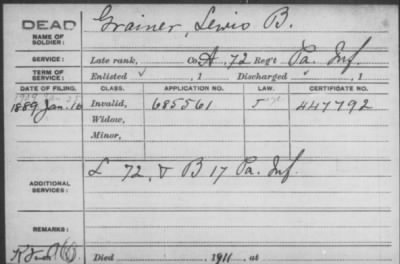 DEAD
NAME OF SOLDIER: Grainer, Lewis B.
SERVICE: Late rank, Co. A, 72 Reg't Pa. Inf.
TERM OF SERVICE: Enlisted , 1 Discharged , 1
DATE OF FILING. CLASS. APPLICATION NO. LAW. CERTIFICATE NO.
1889 Jan. 10 Invalid, 685561 447792
Widow,
Minor,
L 72, & B 17 Pa. Inf.
ADDITIONAL SERVICES:
REMARKS:
Died 1911 at